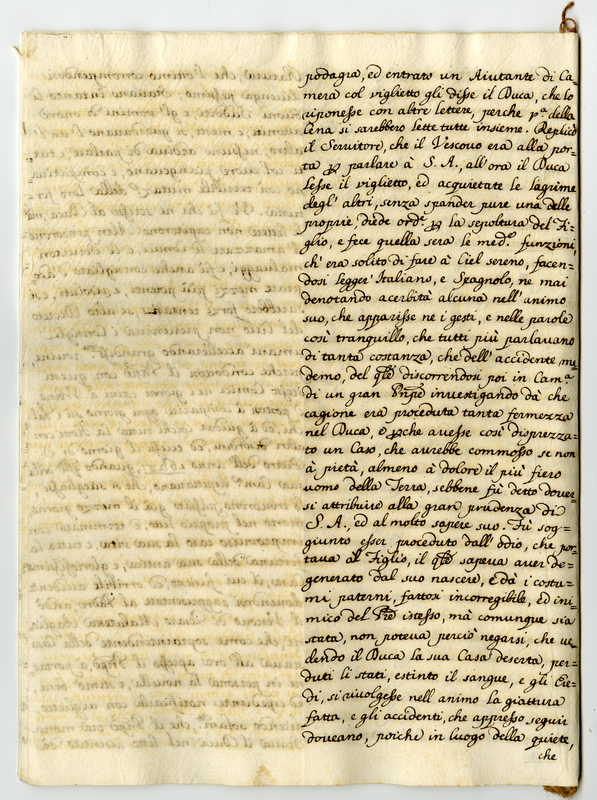 podagra, ed entrato un Aiutante di Ca=
mera col viglietto gli disse il Duca, che lo
riponesse con altre lettere, perche pª. della
Cena si sarebbero lette tutte insieme. Replicò
il Servitore, che il Vescovo era alla por=
ta ꝑ parlare à S. A., all'ora il Duca
lesse il viglietto, ed acquietate le lagrime
degl' altri, senza spander pure una delle
proprie, diede ordᵉ. ꝑ la sepoltura del Fi=
glio, e fece quella sera le medᵉ. funzioni,
ch' era solito di fare à Ciel sereno, facen=
dosi legger' Italiano, e Spagnolo, ne mai
denotando acerbità alcuna nell' animo
suo, che apparisse ne i gesti, e nelle parole
così tranquillo, che tutti più parlavano
di tanta costanza, che dell' accidente me
demo, del qle discorrendosi poi in Camª.
di un gran Pnpe investigando dà che
cagione era proceduta tanta fermezza
nel Duca, e ꝑche avesse così disprezza=
to un Caso, che avrebbe commosso se non
à pietà, almeno à dolore il più fiero
uomo della Terra, sebbene fù detto dover
si attribuire alla gran prudenza di
S. A., ed al molto sapere suo. Fù sog=
giunto esser proceduto dall' odio, che por=
tava al Figlio, il qle sapeva aver de=
generato dal suo nascere, e dà i costu=
mi paterni, fattosi incorregibile, ed ini=
mico del Pre istesso, mà comunque sia
stata, non poteva perciò negarsi, che ve
dendo il Duca la sua Casa deserta, per=
duti li stati, estinto il sangue, e gli Ere=
di, si rivolgesse nell animo la giattura
fatta, e gli accidenti, che appresso seguir
doveano, poiche in luogo della quiete,
che